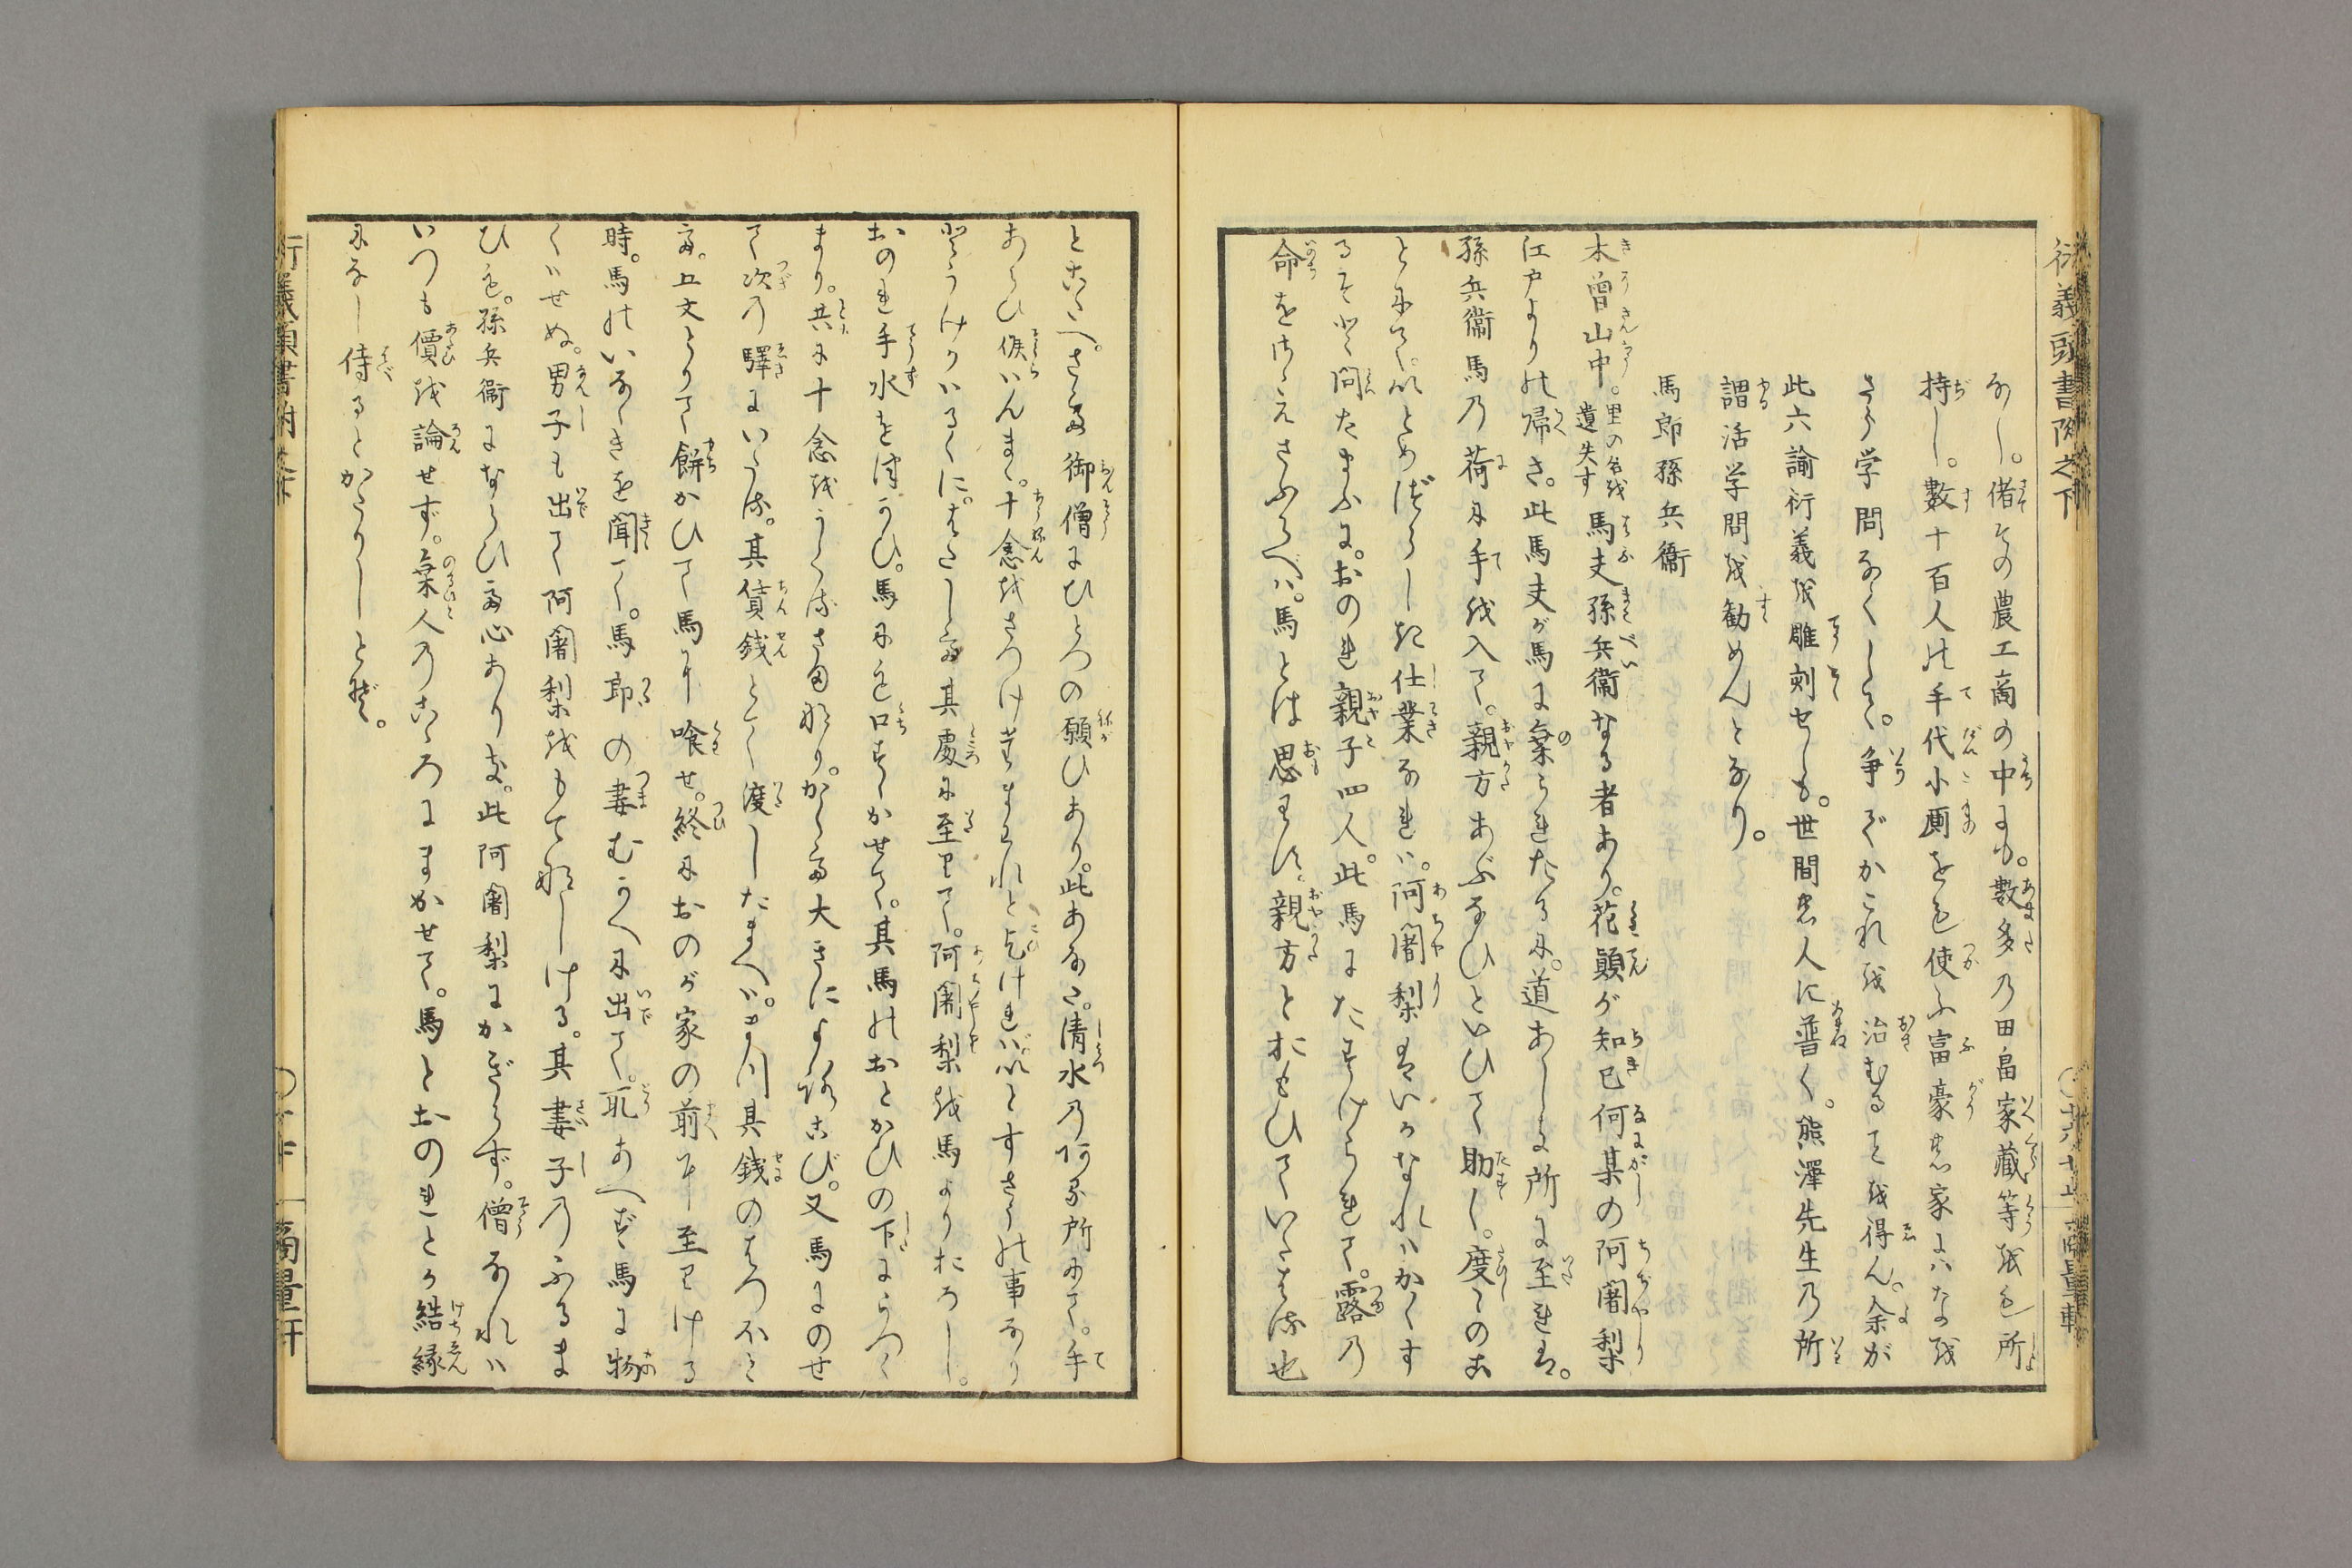 衍義頭書附之下
なし。偖その農工商の中にも。數多の田畠家藏等をも所
持し。數十百人の手代小厮をも使ふ富豪の家にハなを
さら学問なくして。争でかこれを治むることを得ん。余が
此六諭衍義を雕刻せしも。世間の人に普く。熊澤先生の所
謂活学問を勧めんとなり。
馬郎孫兵衞
木曾山中。里の名を遺失す馬夫孫兵衞なる者あり。花顛が知己何某の阿闍梨
江戸よりの帰さ。此馬夫が馬に棄られたるに。道あしき所に至れは。
孫兵衞馬の荷に手を入て。親方あぶなひといひて助く。度々のこ
とにて。いとめづらしき仕業なれハ。阿闍梨はいかなれハかくす
るぞと問たまふに。おのれ親子四人。此馬にたすけられて。露の
命をさゝえさふらへハ。馬とは思はず。親方とおもひていたはる也
とこたへ。さて御僧にひとつの願ひあり。此あなた。清水の有る所にて。手
あらひ候はんまゝ。十念をさづけ給はれと乞けれバ。いとすさうの事なり
とうけかハるゝに。はたして其處に至りて。阿闍梨を馬よりおろし。
おのれ手水をつかひ。馬にも口すゝがせて。其馬のおとがひの下にうづく
まり。共に十念をうくるさまなり。かくて大きによろこび。又馬にのせ
て次の驛にいたる。其賃銭とて渡したまへハ。まづ其銭のはつほと
て。五文とりて餅かひて馬に喰せ。終におのが家の前に至りける
時。馬のいなゝきを聞て。馬郎の妻むかへに出て。取あへず馬に物
くハせぬ。男子も出て阿闍梨をもてなしける。其妻子のふるま
ひも。孫兵衞にならひて心ありき。此阿闍梨にかぎらず。僧なれハ
いつも價を論せず。乗人のこゝろにまかせて。馬とおのれとが結縁
になし侍るとかたりしとぞ。